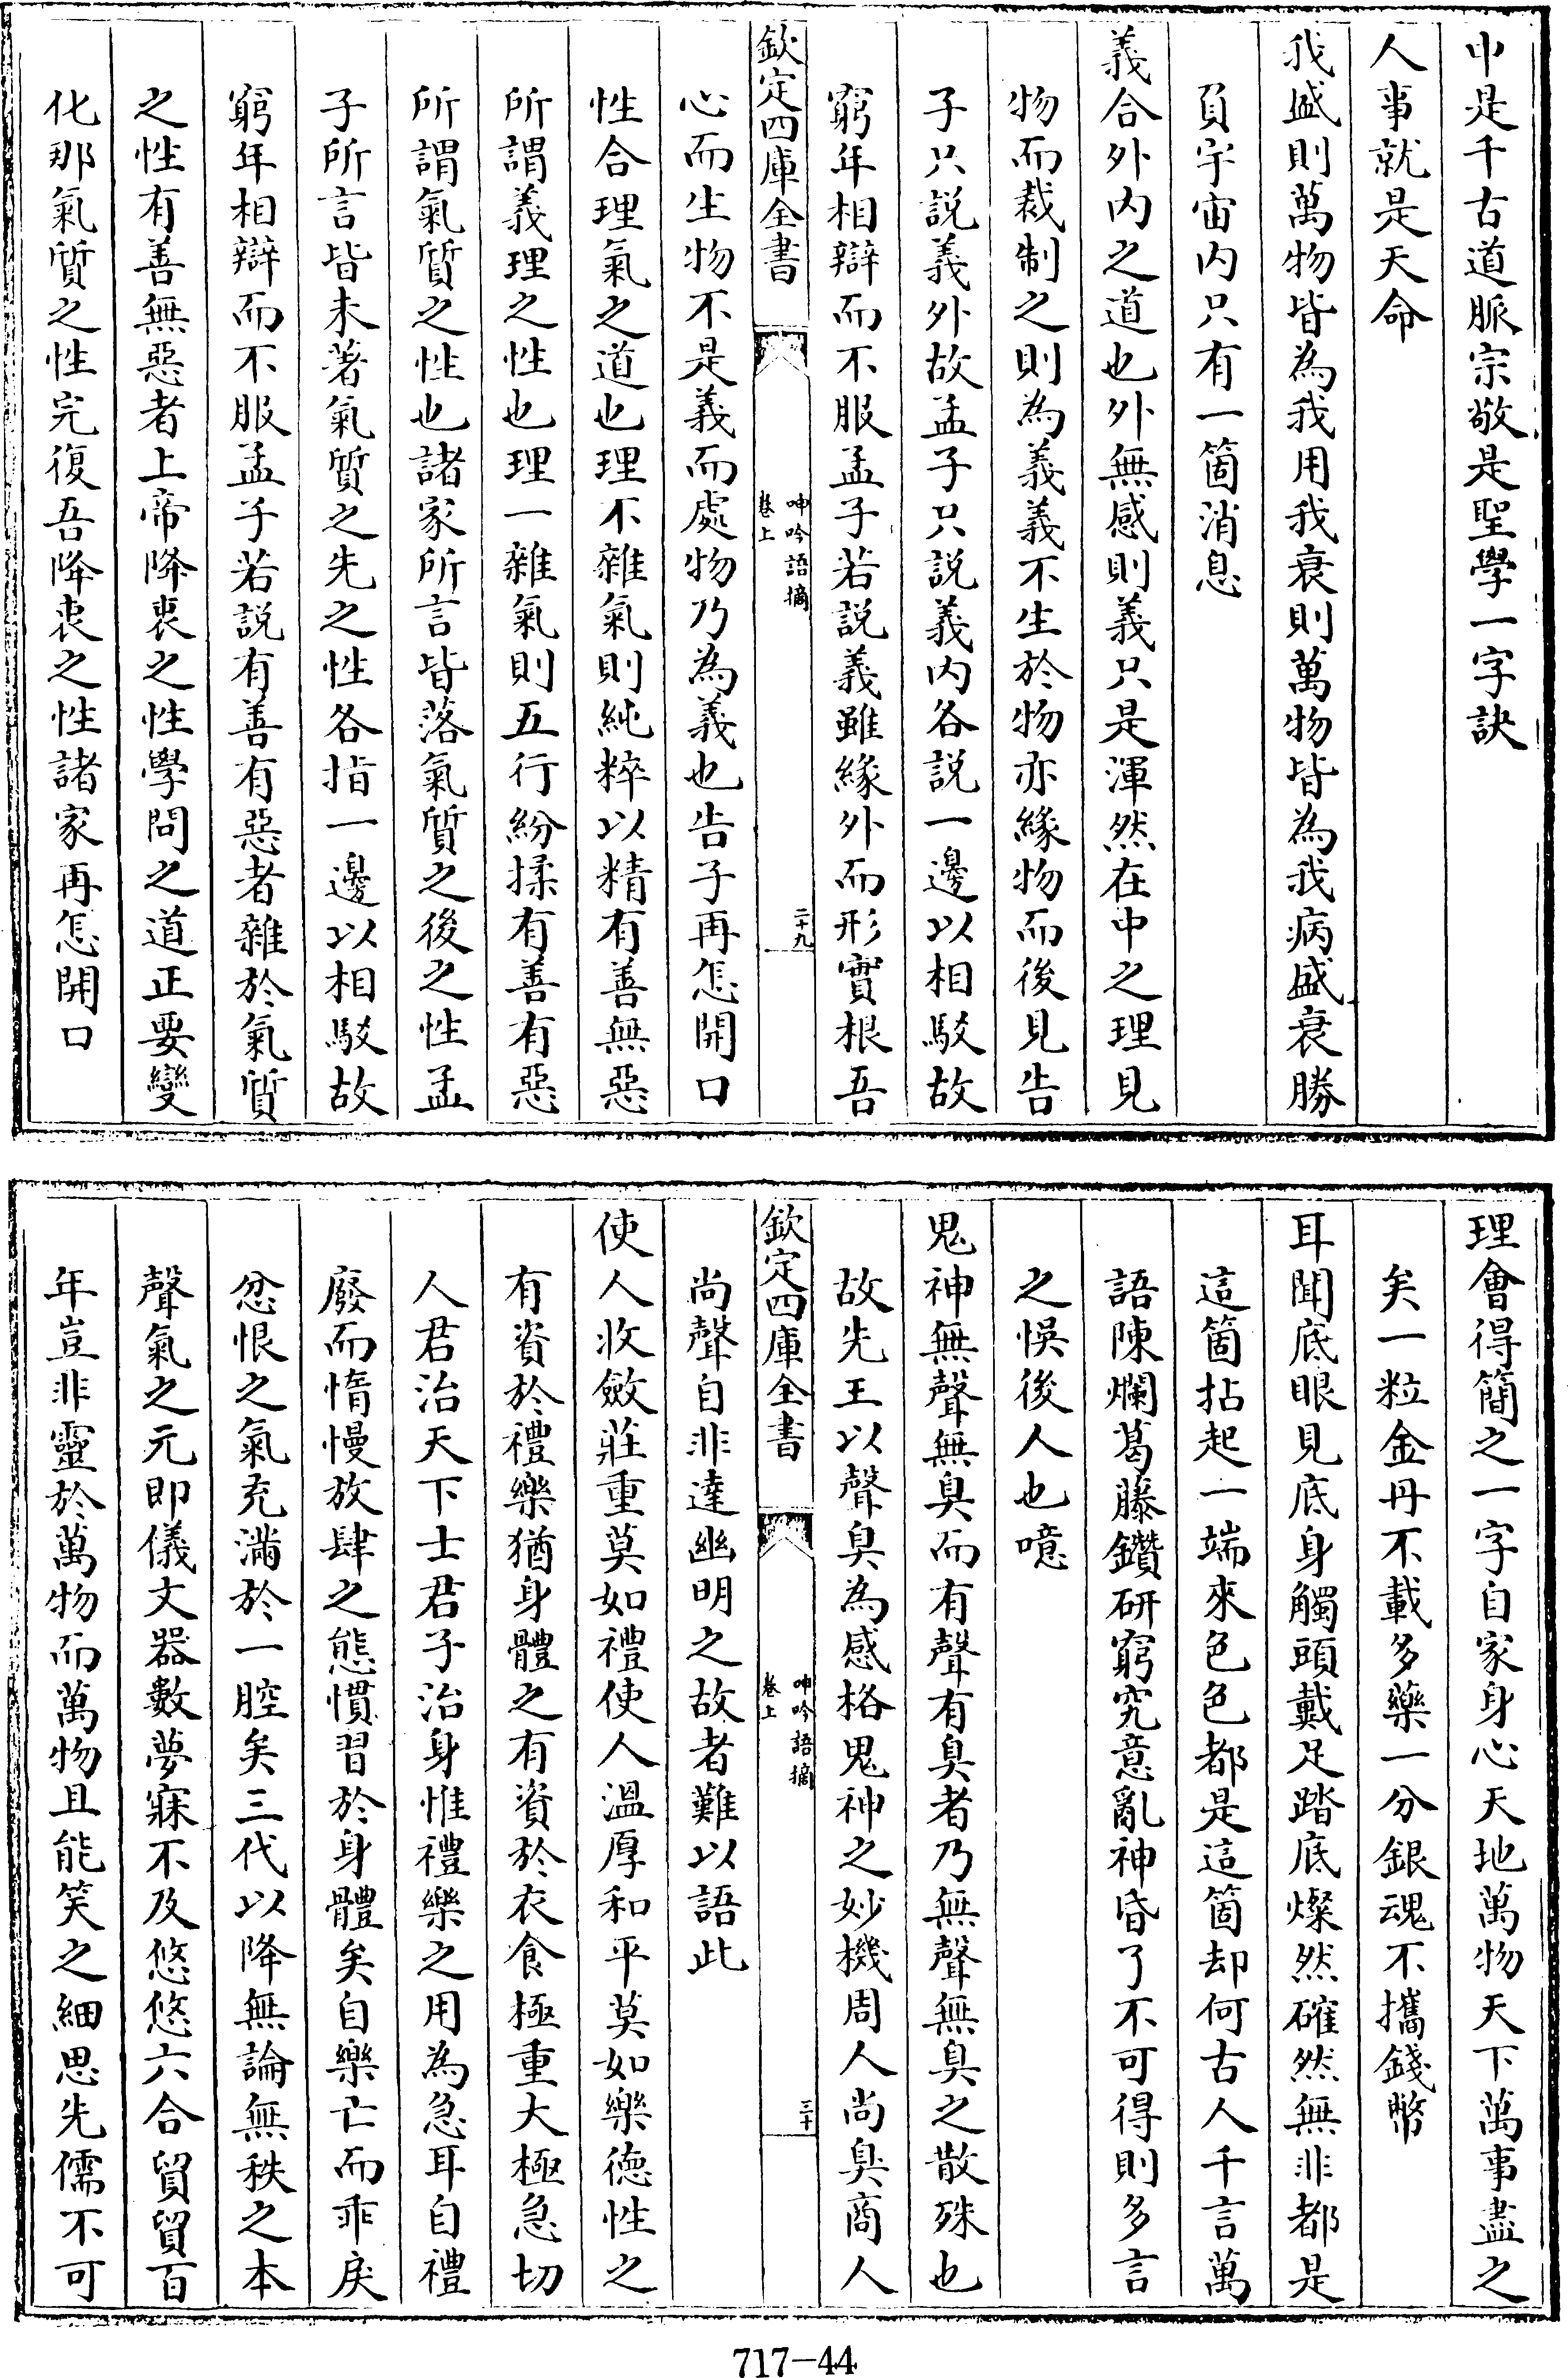 中是千古道脈宗敬是聖學一字訣
人事就是天命
我盛則萬物皆為我用我衰則萬物皆為我病盛衰勝
負宇宙内只有一箇消息
義合外内之道也外無感則義只是渾然在中之理見
物而裁制之則為義義不生於物亦緣物而後見告
子只説義外故孟子只説義内各説一邊以相駁故
窮年相辯而不服孟子若説義雖緣外而形實根吾
欽定四庫全書
呻吟語摘
卷上
二十九
心而生物不是義而處物乃為義也告子再怎開口
性合理氣之道也理不雜氣則純粹以精有善無惡
所謂義理之性也理一雜氣則五行紛揉有善有惡
所謂氣質之性也諸家所言皆落氣質之後之性孟
子所言皆未著氣質之先之性各指一邊以相駁故
窮年相辯而不服孟子若説有善有惡者雜於氣質
之性有善無惡者上帝降衷之性學問之道正要變
化那氣質之性完復吾降衷之性諸家再怎開口
理會得簡之一字自家身心天地萬物天下萬事盡之
矣一粒金丹不載多藥一分銀魂不攜錢幣
耳聞底眼見底身觸頭戴足踏底燦然確然無非都是
這箇拈起一端來色色都是這箇却何古人千言萬
語陳爛葛藤鑽研窮究意亂神昏了不可得則多言
之悞後人也噫
鬼神無聲無臭而有聲有臭者乃無聲無臭之散殊也
故先王以聲臭為感格鬼神之妙機周人尚臭商人
欽定四庫全書
呻吟語摘
卷上
三十
尚聲自非達幽明之故者難以語此
使人收斂莊重莫如禮使人溫厚和平莫如樂德性之
有資於禮樂猶身體之有資於衣食極重大極急切
人君治天下士君子治身惟禮樂之用為急耳自禮
廢而惰慢放肆之態慣習於身體矣自樂亡而乖戾
忿恨之氣充滿於一腔矣三代以降無論無秩之本
聲氣之元即儀文器數夢寐不及悠悠六合貿貿百
年豈非靈於萬物而萬物且能笑之細思先儒不可
717-44